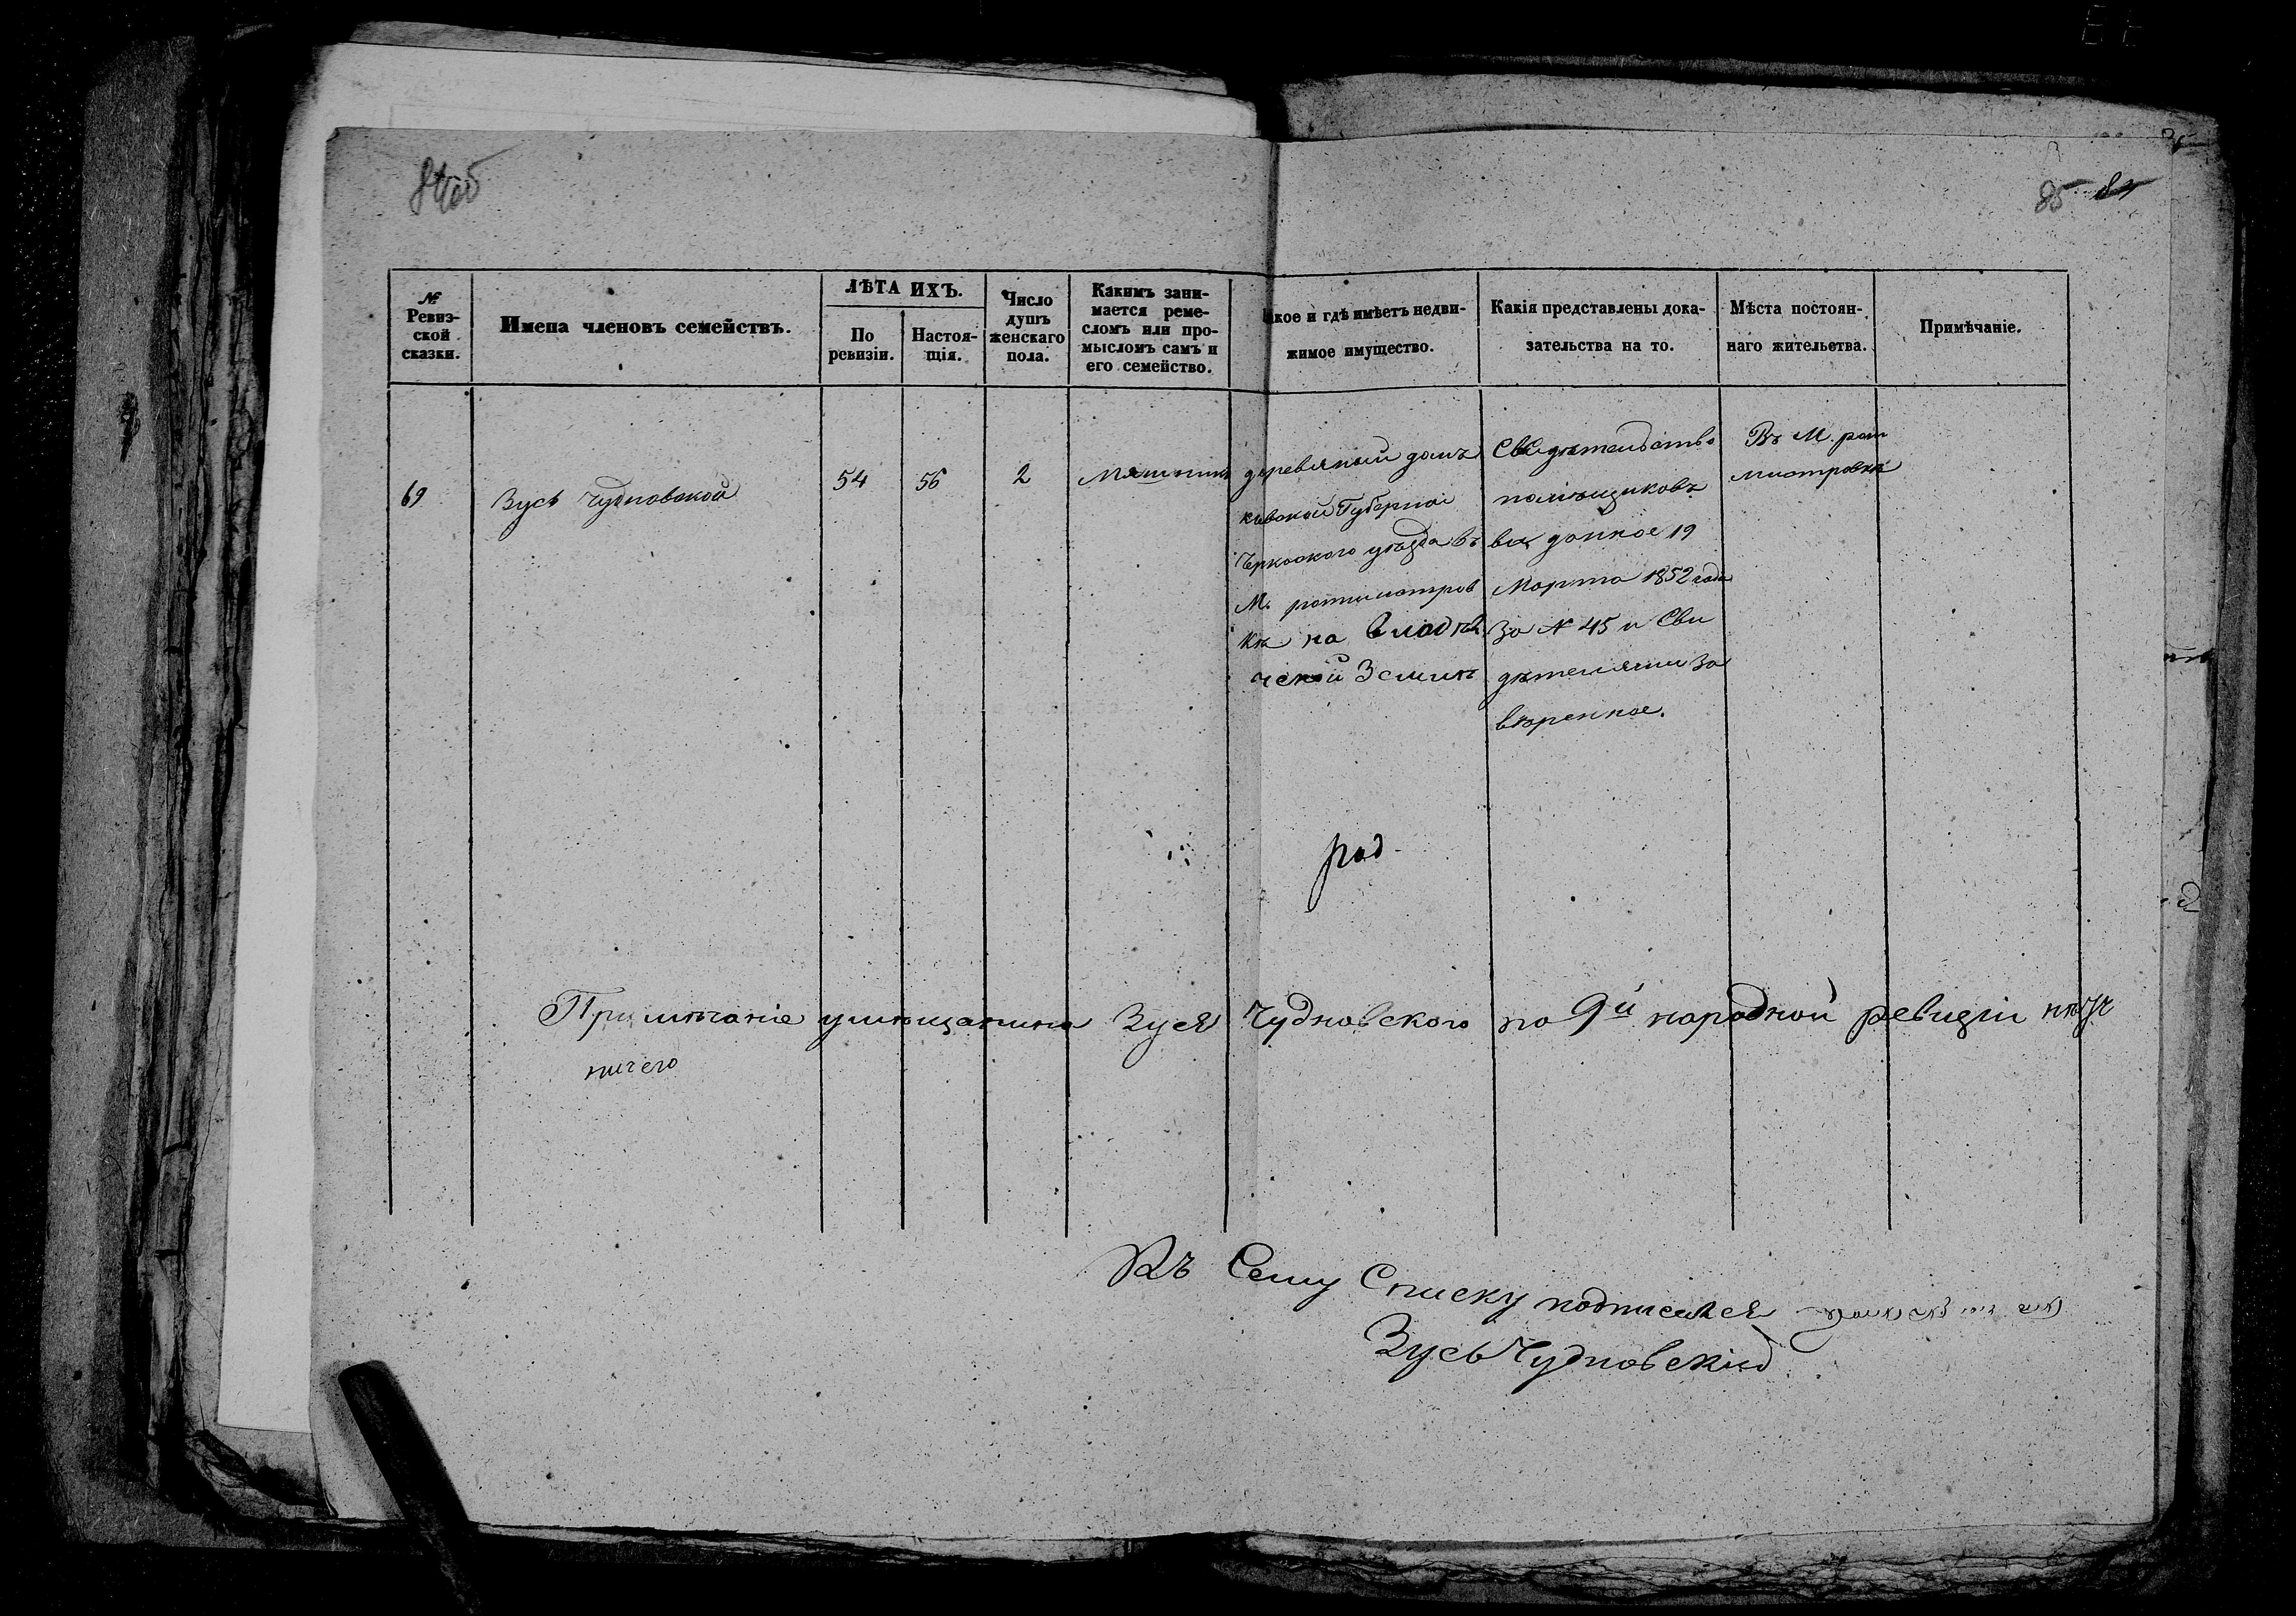 84об
85
№ Ревиз-
ской
сказки.
Имена членовъ семействъ.
ЛѢТА ИХЪ.
По
ревизіи.
Настоя-
щія.
Число
душъ
женскаго
пола.
Какимъ зани-
мается реме-
сломъ или про-
мысломъ самъ и
его семейство.
кое и гдѣ имѣетъ недви-
жимое имущество.
Какія представлены дока-
зательства на то.
Мѣста постоян-
наго жительства.
Примѣчаніе.
69
Зусь Чудновской
54
56
2
деревяный домъ
киевской Губерніи
Черкаского уѣзда въ
М. ротмистров
кѣ на владѣль
ческой Земли
Свидѣтельство
помѣщиковъ
выданное 19
Марта 1852 года
за № 45 и Сви
дѣтелями за
вѣренное.
Въ М. рот
мистровкѣ
Примѣчаніе умѣщанина Зуся Чудновского по 9й народной ревизіи нѣтъ
ничего
Къ Сему Списку подписался
Зусь Чудновскій